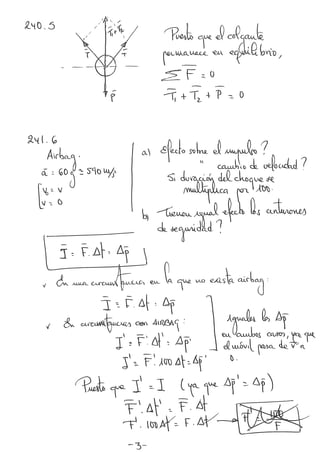 240.5
T₁+T₂
T̄
T̄
P̄
Puesto que el colgante
permanece en equilibrio,
Σ F̄ = 0
T̄₁ + T̄₂ + P̄ = 0
241.6
Airbag.
ā = 60 g ≃ 590 m/s²
V₀ = V
V = 0
a) Efecto sobre el impulso?
" cambio de velocidad?
Si duración del choque se
multiplica por 100.
b) Tienen igual efecto los cinturones
de seguridad?
Ī = F̄. Δt = Δp̄
✓ En una circunstancias en la que no exista airbag:
Ī = F̄. Δt = Δp̄
✓ En circunstancias con AIRBAG:
Ī' = F̄'. Δt' = Δp̄'
Ī' = F̄'. 100 Δt = Δp̄'
iguales los Δp̄
en ambos casos, ya que
el móvil pasa de v̄ a
0.
Puesto que Ī' = Ī (ya que Δp̄' = Δp̄)
F̄'. Δt' = F̄. Δt
F'. 100 Δt = F. Δt
-3-